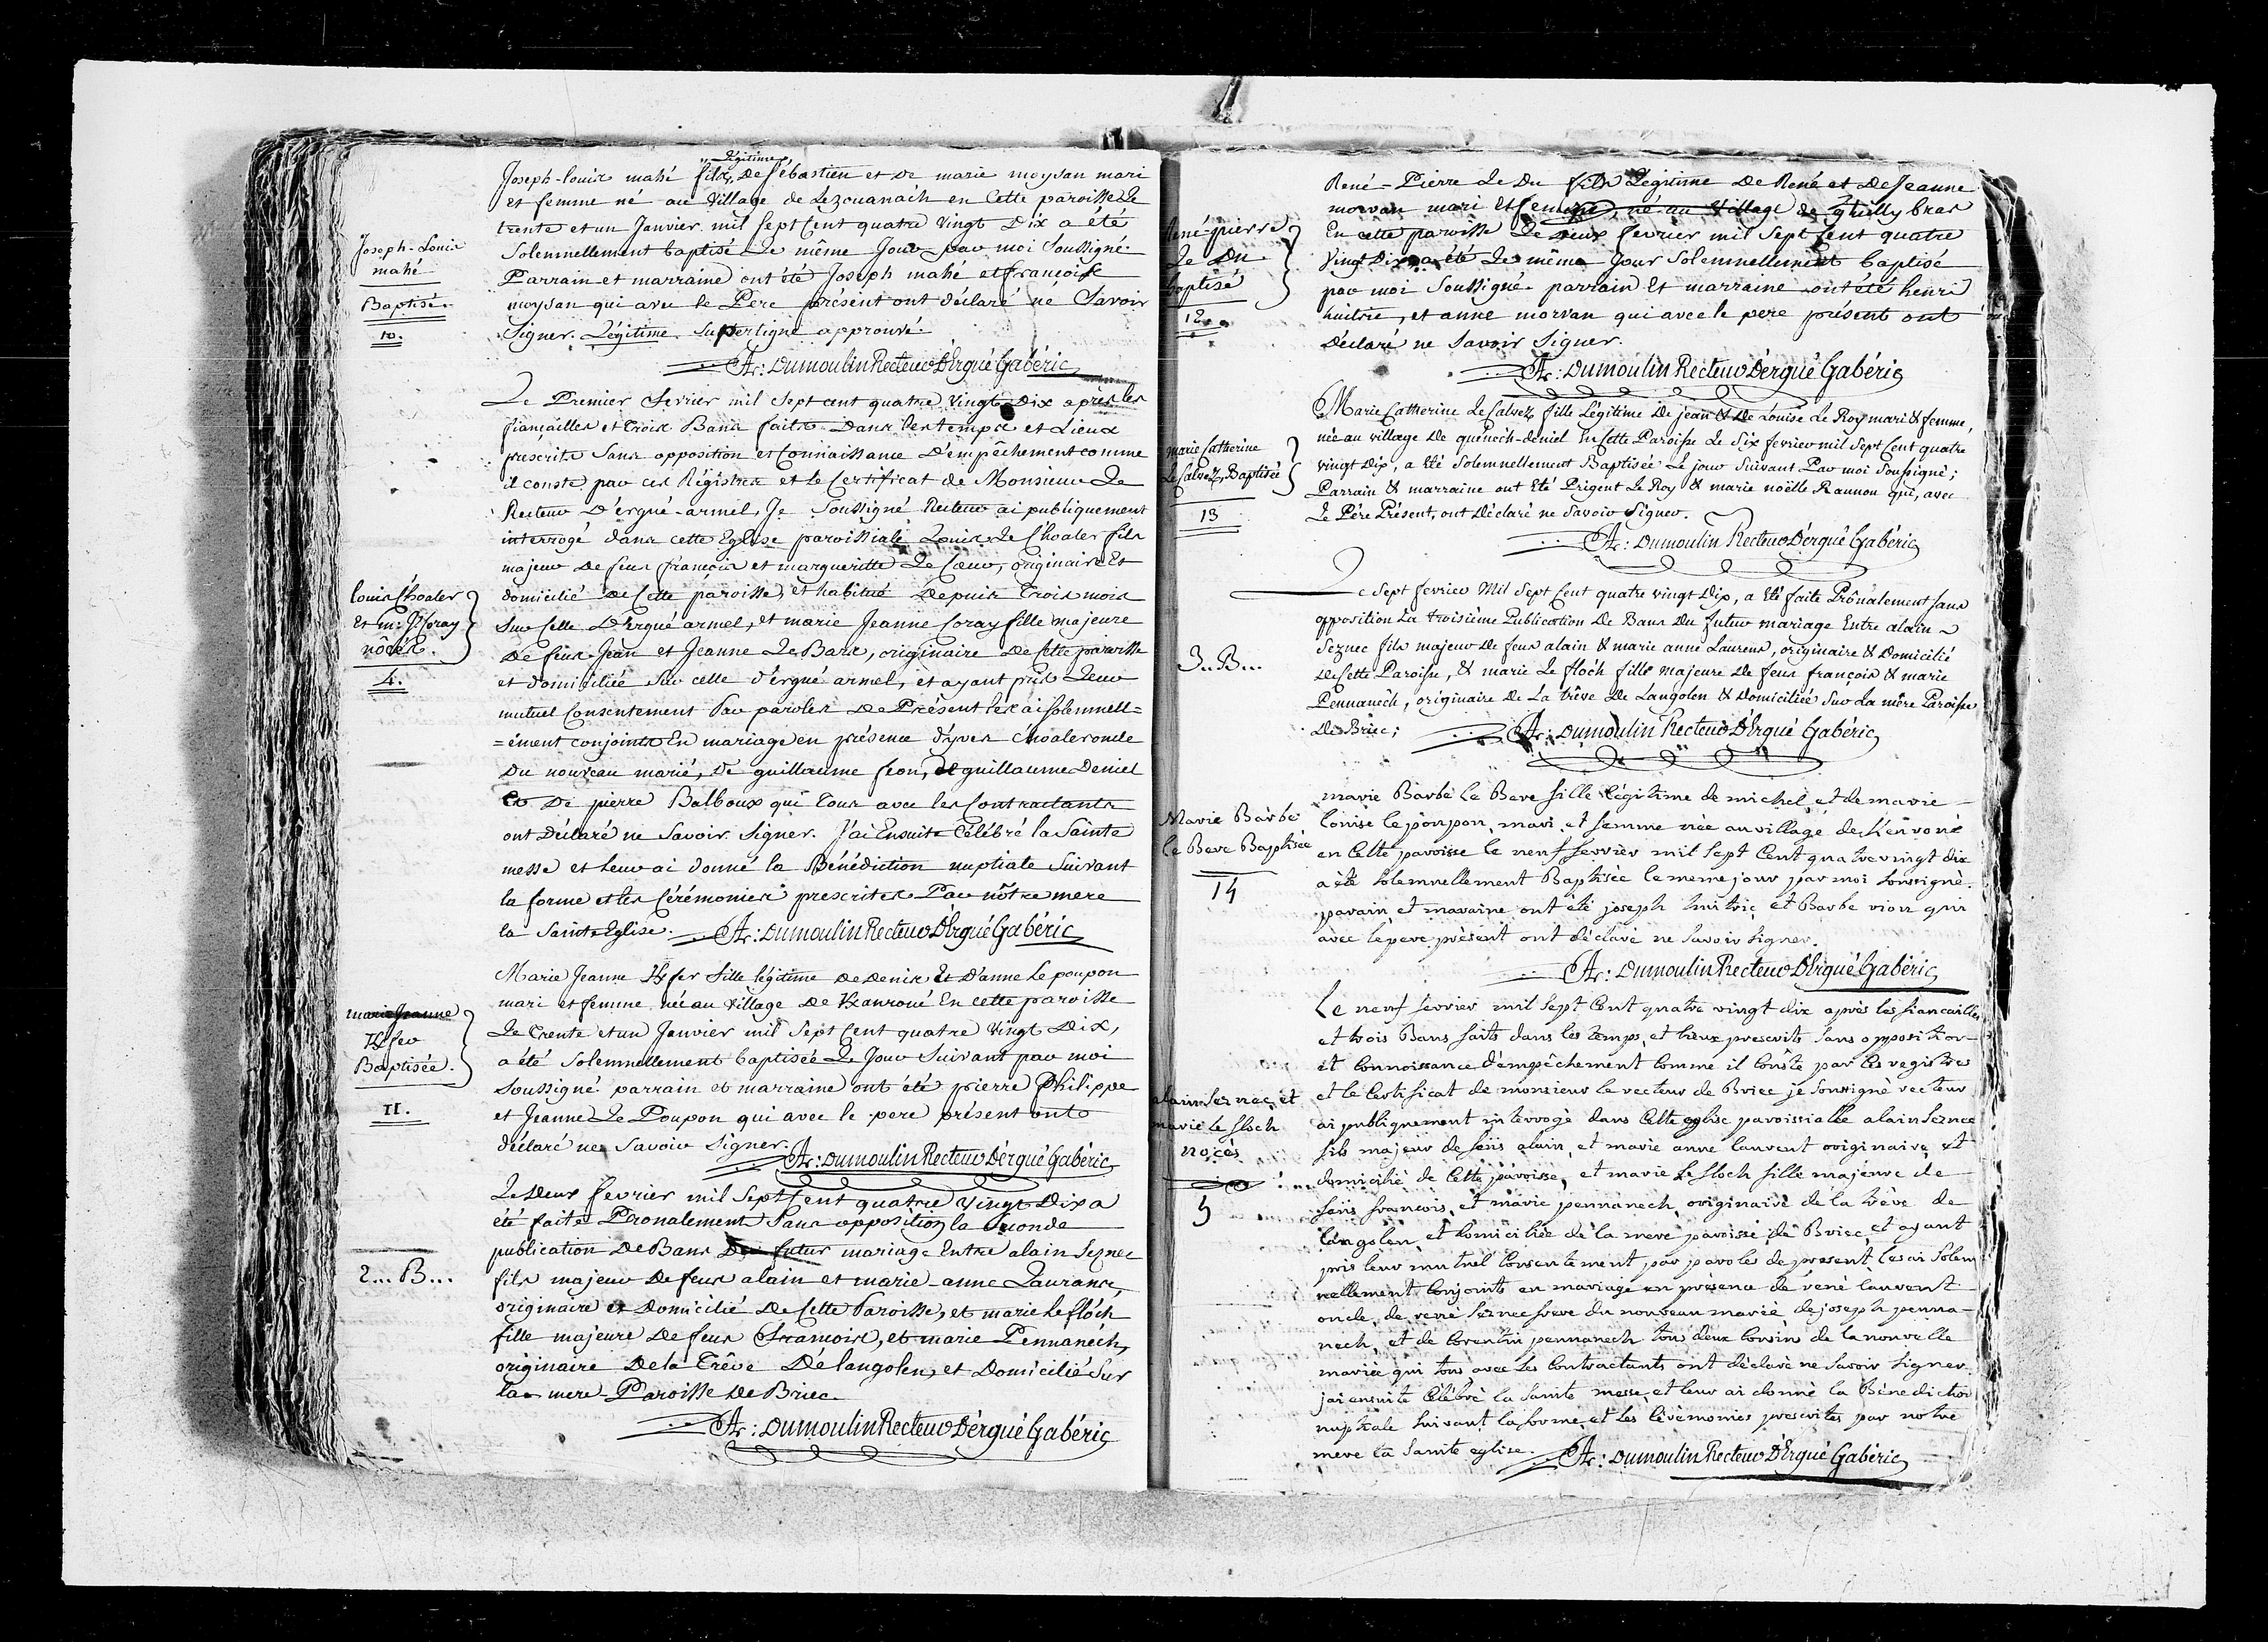 Joseph-Louis
mahé
Baptisé.
10.
légitime
Joseph-louis mahé fils, De sébastien et de marie moysan mari
et femme né au village de Lezouanach en Cette paroisse Le
trente et un Janvier mil Sept Cent quatre vingt Dix a été
Solemnellement baptisé Le même Jour par moi Soussigné
Parrain et marraine ont été Joseph mahé et françoise
moysan qui avec le Pere présent ont déclaré né Savoir
Signer. Légitime. Superligne approuvé.
Ar: Dumoulin Recteur D'Ergué Gabéric
louis Choaler
et m: J: Coray
nôcés.
4.
Le Premier fevrier mil Sept cent quatre vingt Dix après les
fiançailles et trois Bans faits Dans les temps et Lieux
prescrits Sans opposition et Connaissance D'empêchement comme
il conste par ces Régistres et le Certificat de Monsieur Le
Recteur D'érgué-armel, Je Soussigné Recteur ai publiquement
interrogé dans cette Eglise paroissiale Louis Le Choaler fils
majeur De feus françois et margueritte Le Cœur, originaire Et
domicilié De Cette paroisse, et habitué Depuis Trois mois
Sur Celle D'Ergué armel, et marie Jeanne Coray fille majeure
De feus Jean et Jeanne Le Bars, originaire De Cette paroisse
et domiciliée Sur celle d'érgué armel, et ayant pris Leur
mutuel Consentement Par paroles De Présent les ai Solemnell=
=ément conjoints En mariage en présence d'yves Choaler oncle
Du nouveau marié, de guillaume feon, de guillaume Deniel
et De pierre Balboux qui Tous avec les Contractants
ont Déclaré ne Savoir Signer. J'ai Ensuite Célébré la Sainte
messe et leur ai donné la Bénédiction nuptiale Suivant
la forme et les Cérémonies prescrites Par nôtre mere
la Sainte Eglise. Ar: Dumoulin Recteur D'Ergué Gabéric
marie Jeanne
Kfer
Baptisée.
11.
Marie Jeanne Kfer fille légitime de Denis Et D'anne Le poupon
mari et femme née au village De Kanroué En cette paroisse
Le trente et un Janvier mil Sept Cent quatre Vingt Dix,
a été Solemnellement baptisée Le Jour Suivant par moi
Soussigné parrain et marraine ont été pierre Philippe
et Jeanne Le Poupon qui avec le pere présent ont
déclaré ne Savoir Signer. Ar: Dumoulin Recteur D'érgué Gabéric
2... B...
Le Deux fevrier mil Sept Cent quatre Vingt Dix a
été faite Pronalement Sans opposition la Seconde
publication De Bans Du futur mariage Entre alain Seznec
fils majeur De feus alain et marie-anne Laurans,
originaire et Domicilié De Cette Paroisse, et marie Le flóch
fille majeure De feus François, et marie Pennanéch,
originaire De la Trêve De langolen, et Domicilié Sur
la mere-Paroisse De Briec.
Ar: Dumoulin Recteur D'érgué Gabéric
René-pierre
Le Du
baptisé
12.
René-Pierre Le Du fils Légitime De René et De Jeanne
morvan mari Et femme, né au Village de quilly bras
En cette paroisse Le deux fevrier mil Sept Cent quatre
Vingt Dix a été Le même Jour Solemnellement baptisé
par moi Soussigné. parrain Et marraine ont été henri
huitric, et anne morvan qui avec le pere présent ont
Déclaré ne Savoir Signer.
Ar: Dumoulin Recteur D'érgué Gabéric
marie Catherine
Le Calvez, Baptisée
13
Marie Catherine Le Calvez, fille Légitime De jean & De Louise Le Roy mari & femme,
née au village De quénéch-deniel En Cette Paroisse Le Six fevrier mil Sept Cent quatre
vingt Dix, a Eté Solemnellement Baptisée Le jour Suivant Par moi Soussigné;
Parrain & marraine ont Eté Prigent Le Roy & marie noëlle Rannou qui, avec
Le Pére Présent, ont Déclaré ne Savoir Signer.
Ar: Dumoulin Recteur D'érgué Gabéric
3.. B...
Le Sept fevrier Mil Sept Cent quatre vingt Dix, a Eté faite Prônalement Sans
opposition La troisième Publication De Bans Du futur mariage Entre alain
Seznec fils majeur De feus alain & marie anne Laurens, originaire & Domicilié
De Cette Paroisse, & marie Le floch fille majeure De feus françois & marie
Pennanéch, originaire De La trêve De Langolen & Domiciliée Sur La mére Paroisse
De Briec; Ar: Dumoulin Recteur D'Ergué Gabéric
Marie Barbe
le Bere Baptisée
14
marie Barbe Le Bere fille légitime de michel et de marie
louise le poupon, mari et femme née au village de Kenroué
en Cette paroisse le neuf fevrier mil Sept Cent quatre vingt dix
a été Solemnellement Baptisée le meme jour par moi Soussigné.
parain et maraine ont été joseph huitric et Barbe riou qui
avec le pere présent ont déclaré ne Savoir Signer.
Ar: Dumoulin Recteur D'Ergué Gabéric
alain Seznec, et
marie le floch
nocés
5
Le neuf fevrier mil Sept Cent quatre vingt dix après les fiancailles
et trois Bans faits dans les temps, et lieux prescrits Sans opposition
et Connoissance d'empêchement Comme il Conste par les registres
et le Certificat de monsieur le recteur de Briec je Soussigné recteur
ai publiquement interrogé dans Cette eglise paroissialle alain Seznec
fils majeur de feus alain, et marie anne laurent originaire, et
domicilié de Cette paroisse, et marie Le floch fille majeure de
feus francois, et marie pennanech, originaire de la trève de
langolen, et domiciliée de la mere paroisse de Briec, et ayant
pris leur mutuel Consentement par paroles de present, les ai Solem
nellement Conjoints en mariage en présence de rené laurent
oncle, de rené Seznec frere du nouveau marié, de joseph penna-
nech, et de Corentin pennanech tous deux Cousins de la nouvelle
mariée qui tous avec les Contractants ont déclaré ne Savoir Signer.
jai ensuite Célébré la Sainte messe, et leur ai donné la Bénediction
nuptiale Suivant la forme, et les Cérémonies prescrites par notre
mere la Sainte eglise. Ar: Dumoulin Recteur D'Ergué Gabéric